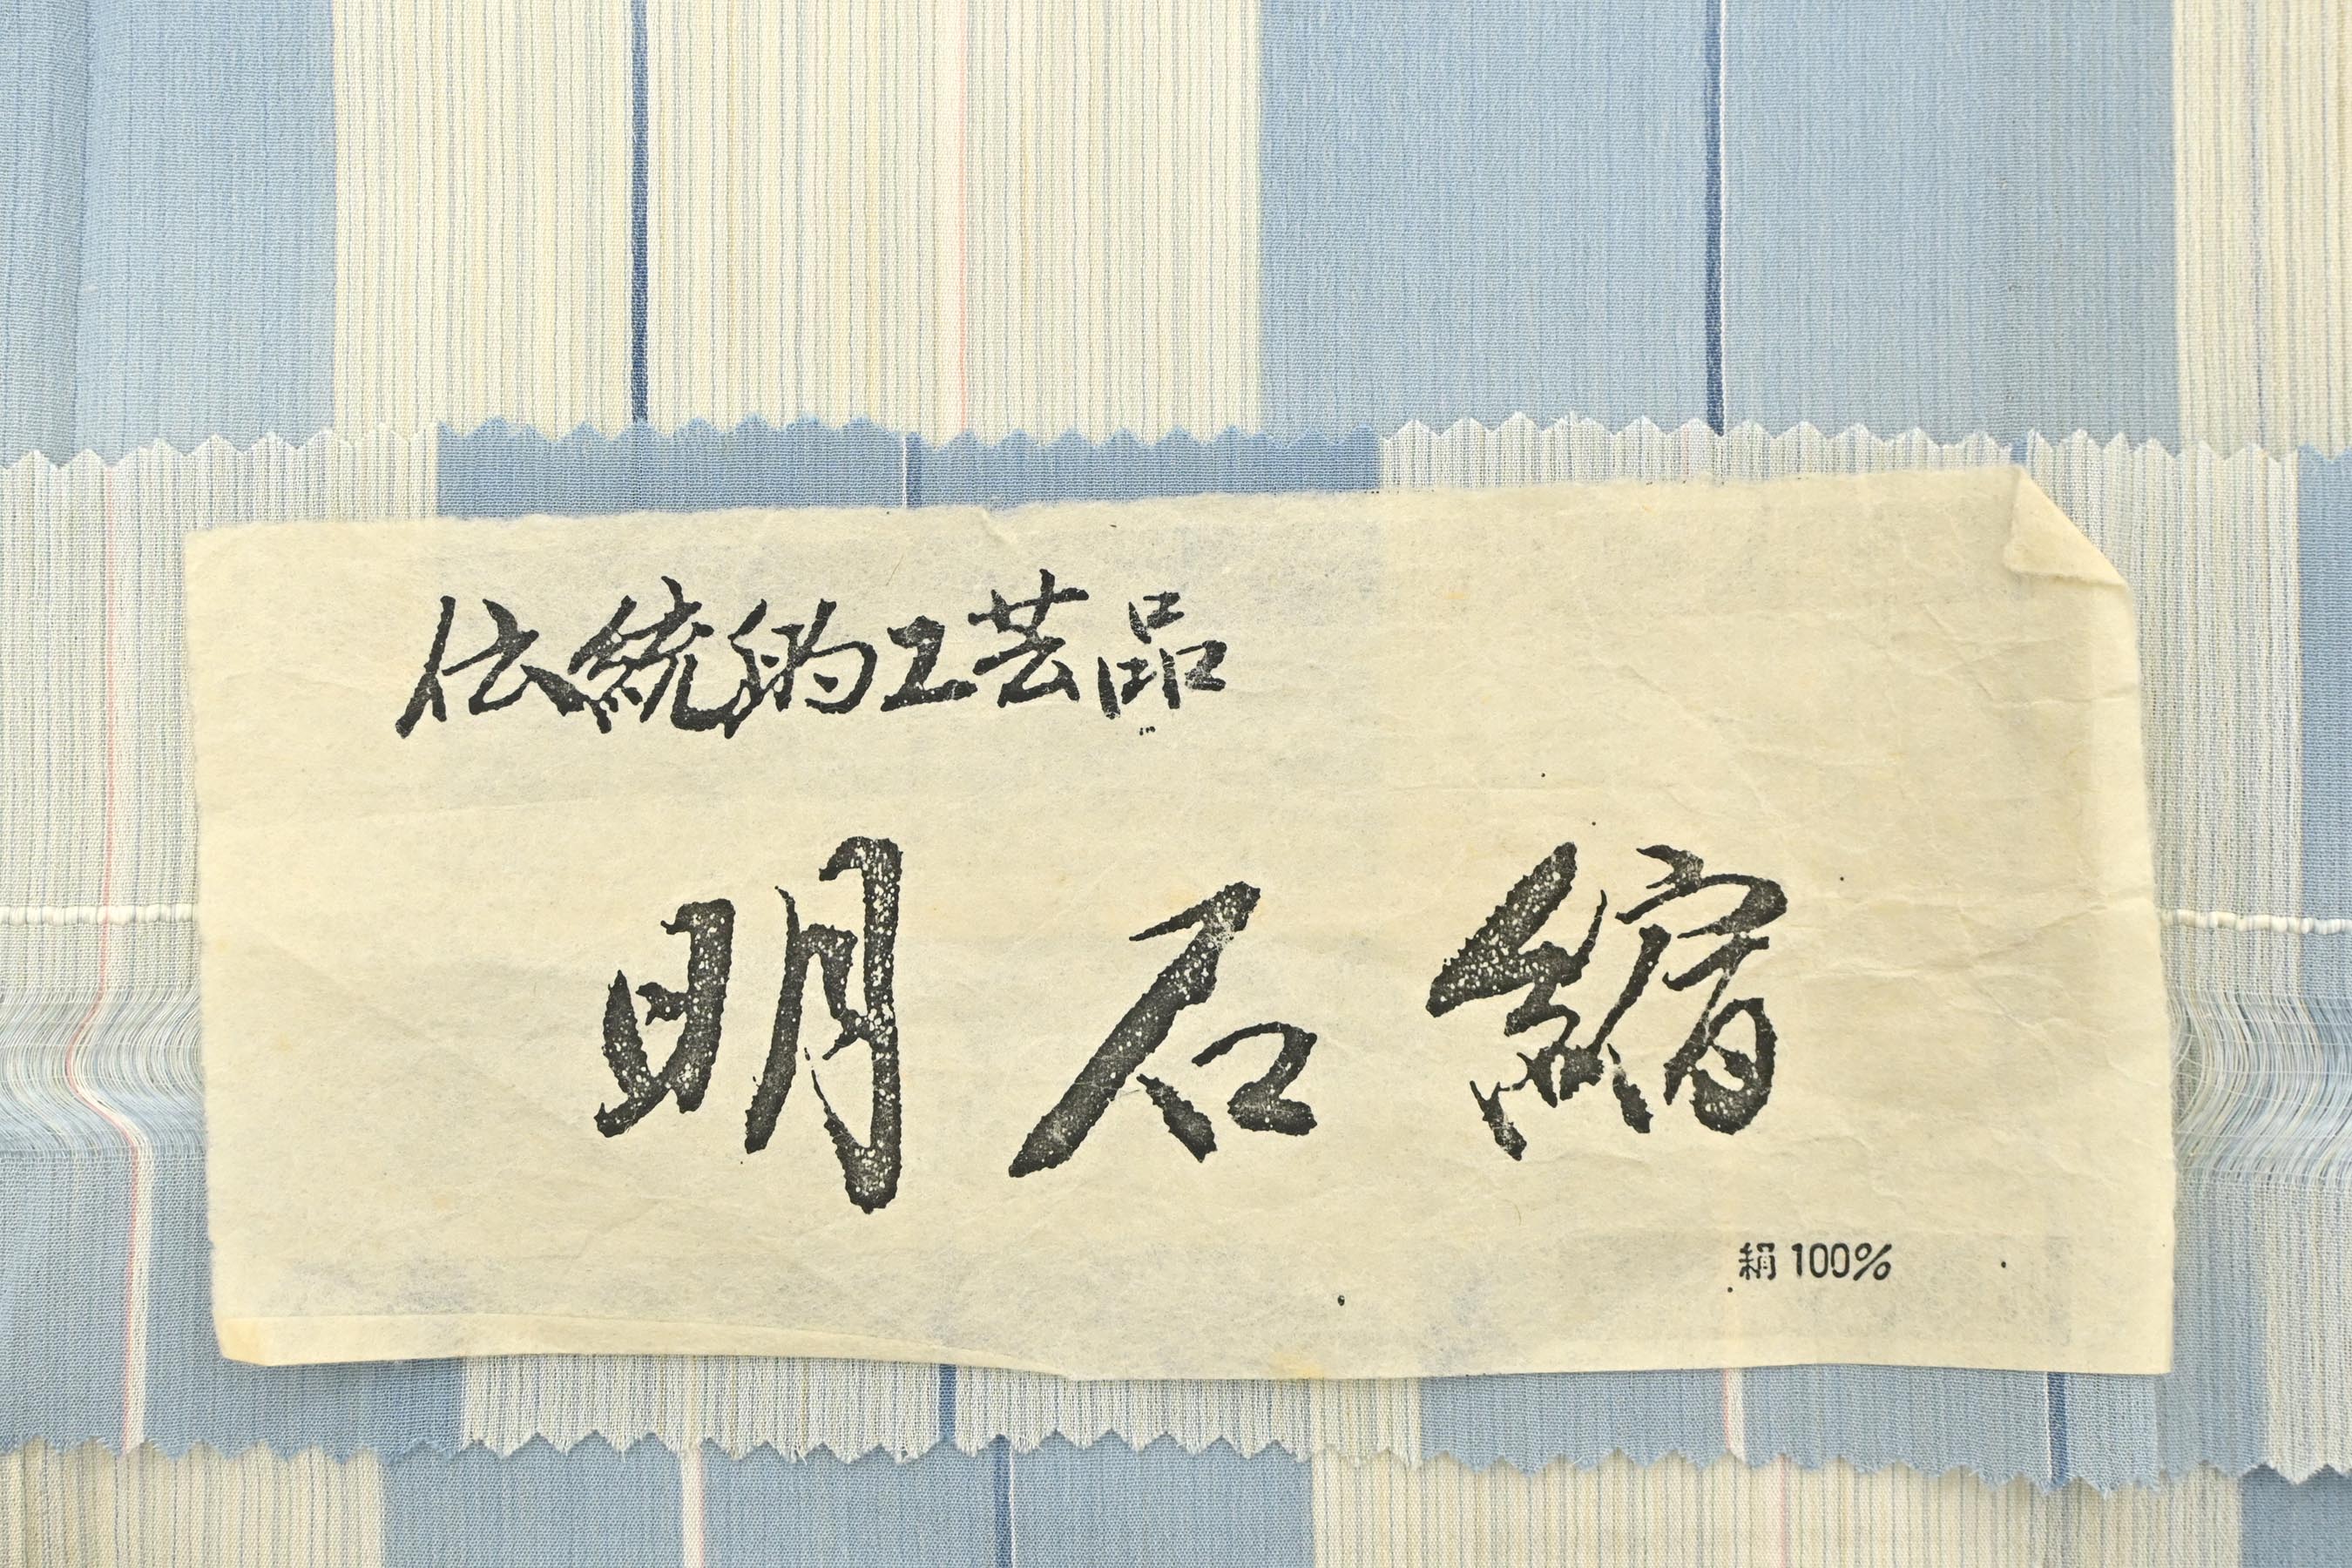 伝統的工芸品
明石縮
絹100%